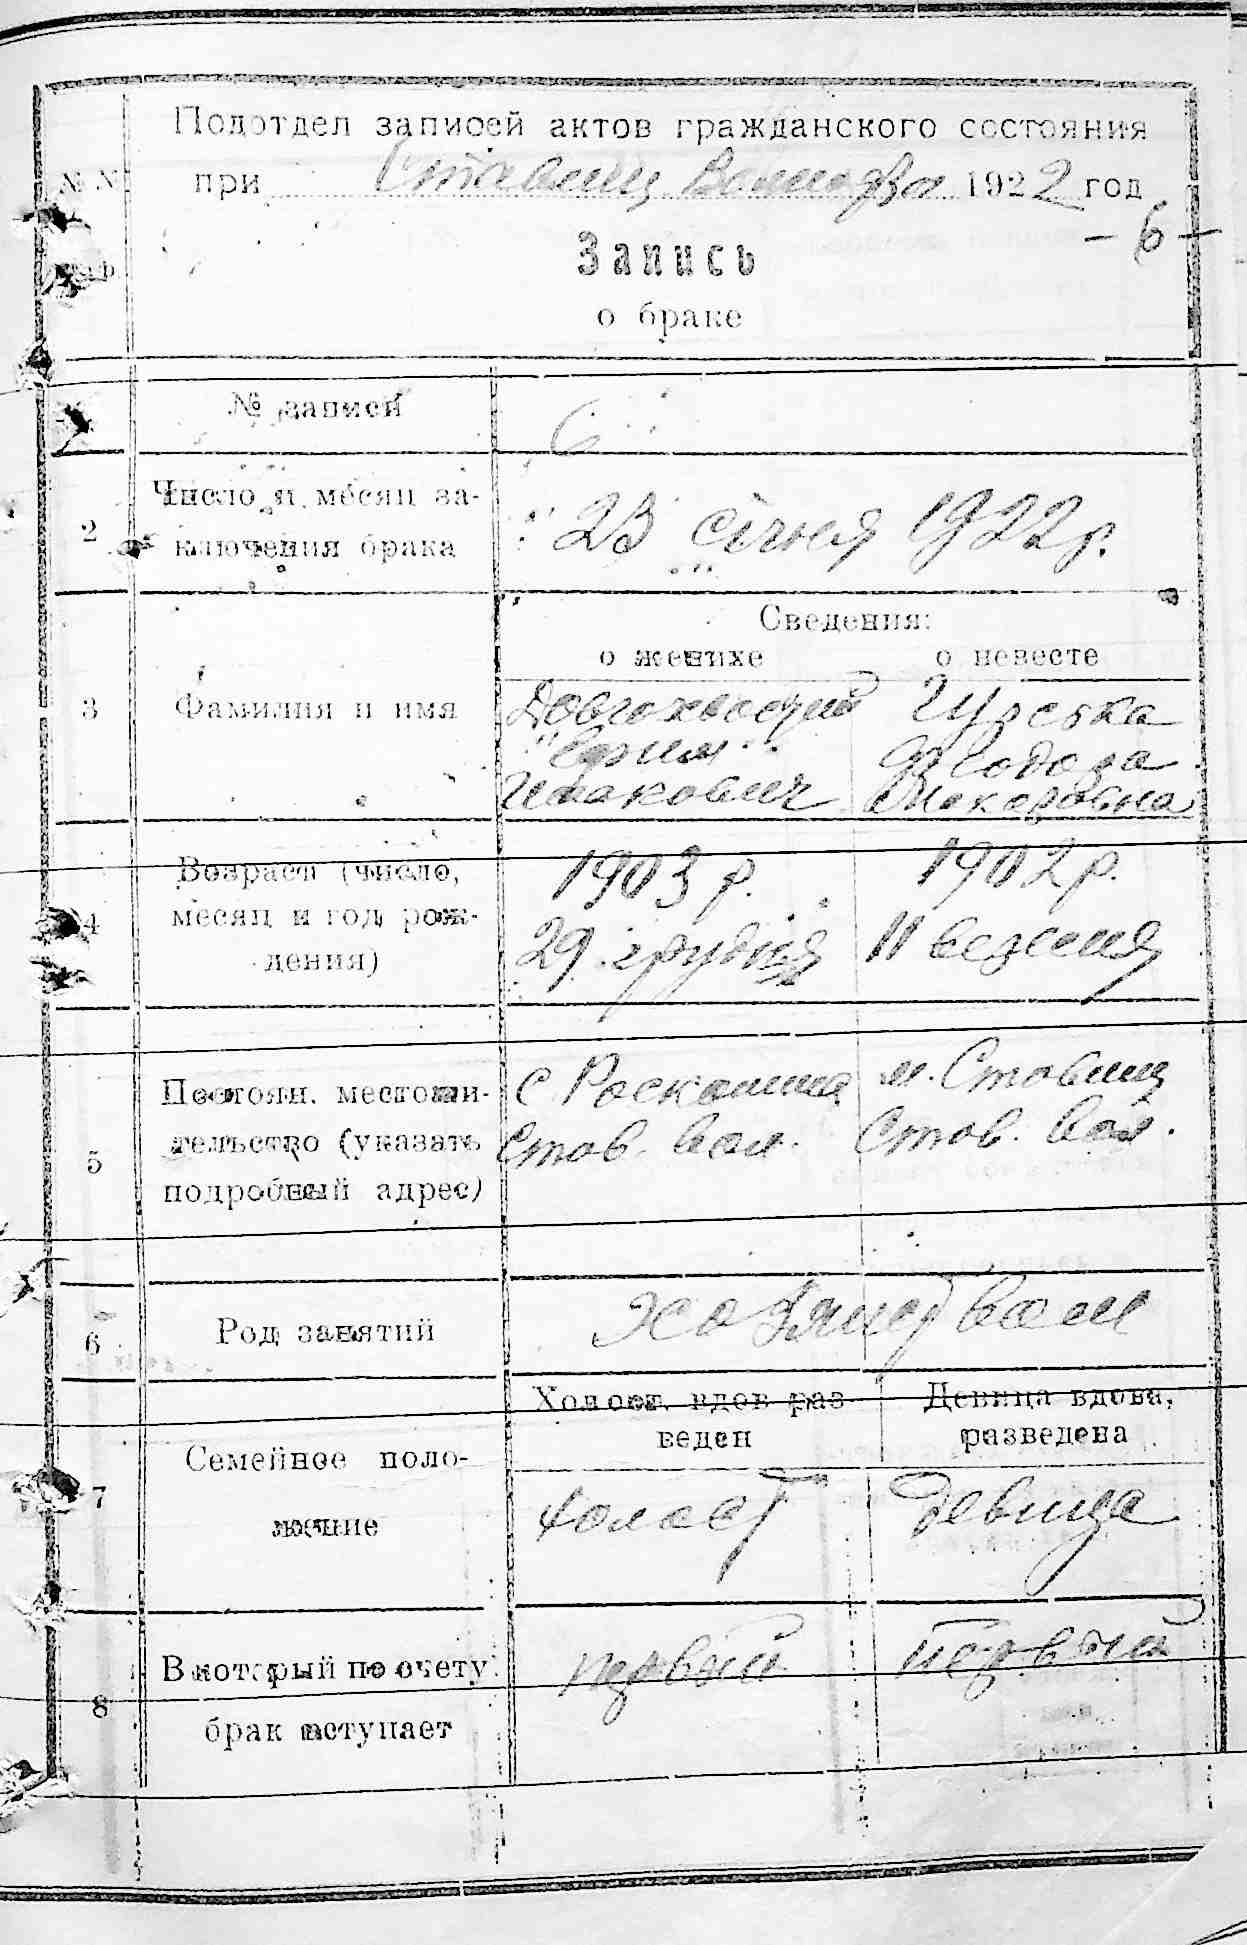 Подотдел записей актов гражданского состояния
№ №
при Ставищ 1922 год
- 6 -
Запись
о браке
№ записи
6
2
Число и месяц за-
ключения брака
23 січня 1922 р.
Сведения:
о женихе
о невесте
3
Фамилия и имя
Довгохвостий
Ісакович
Феодора
Макаровна
4
Возраст (число,
месяц и год рож-
дения)
1903 р.
29 грудня
1902 р.
11
5
Постоян. местожи-
тельство (указать
подробный адрес)
с Роскошна
Став. вол.
м. Ставищ
Став. вол.
6
Род занятий
Хозяйством
7
Семейное поло-
жение
Холост, вдов, раз-
веден
Девица вдова,
разведена
холост
девица
8
В который по счету
брак вступает
первый
первый